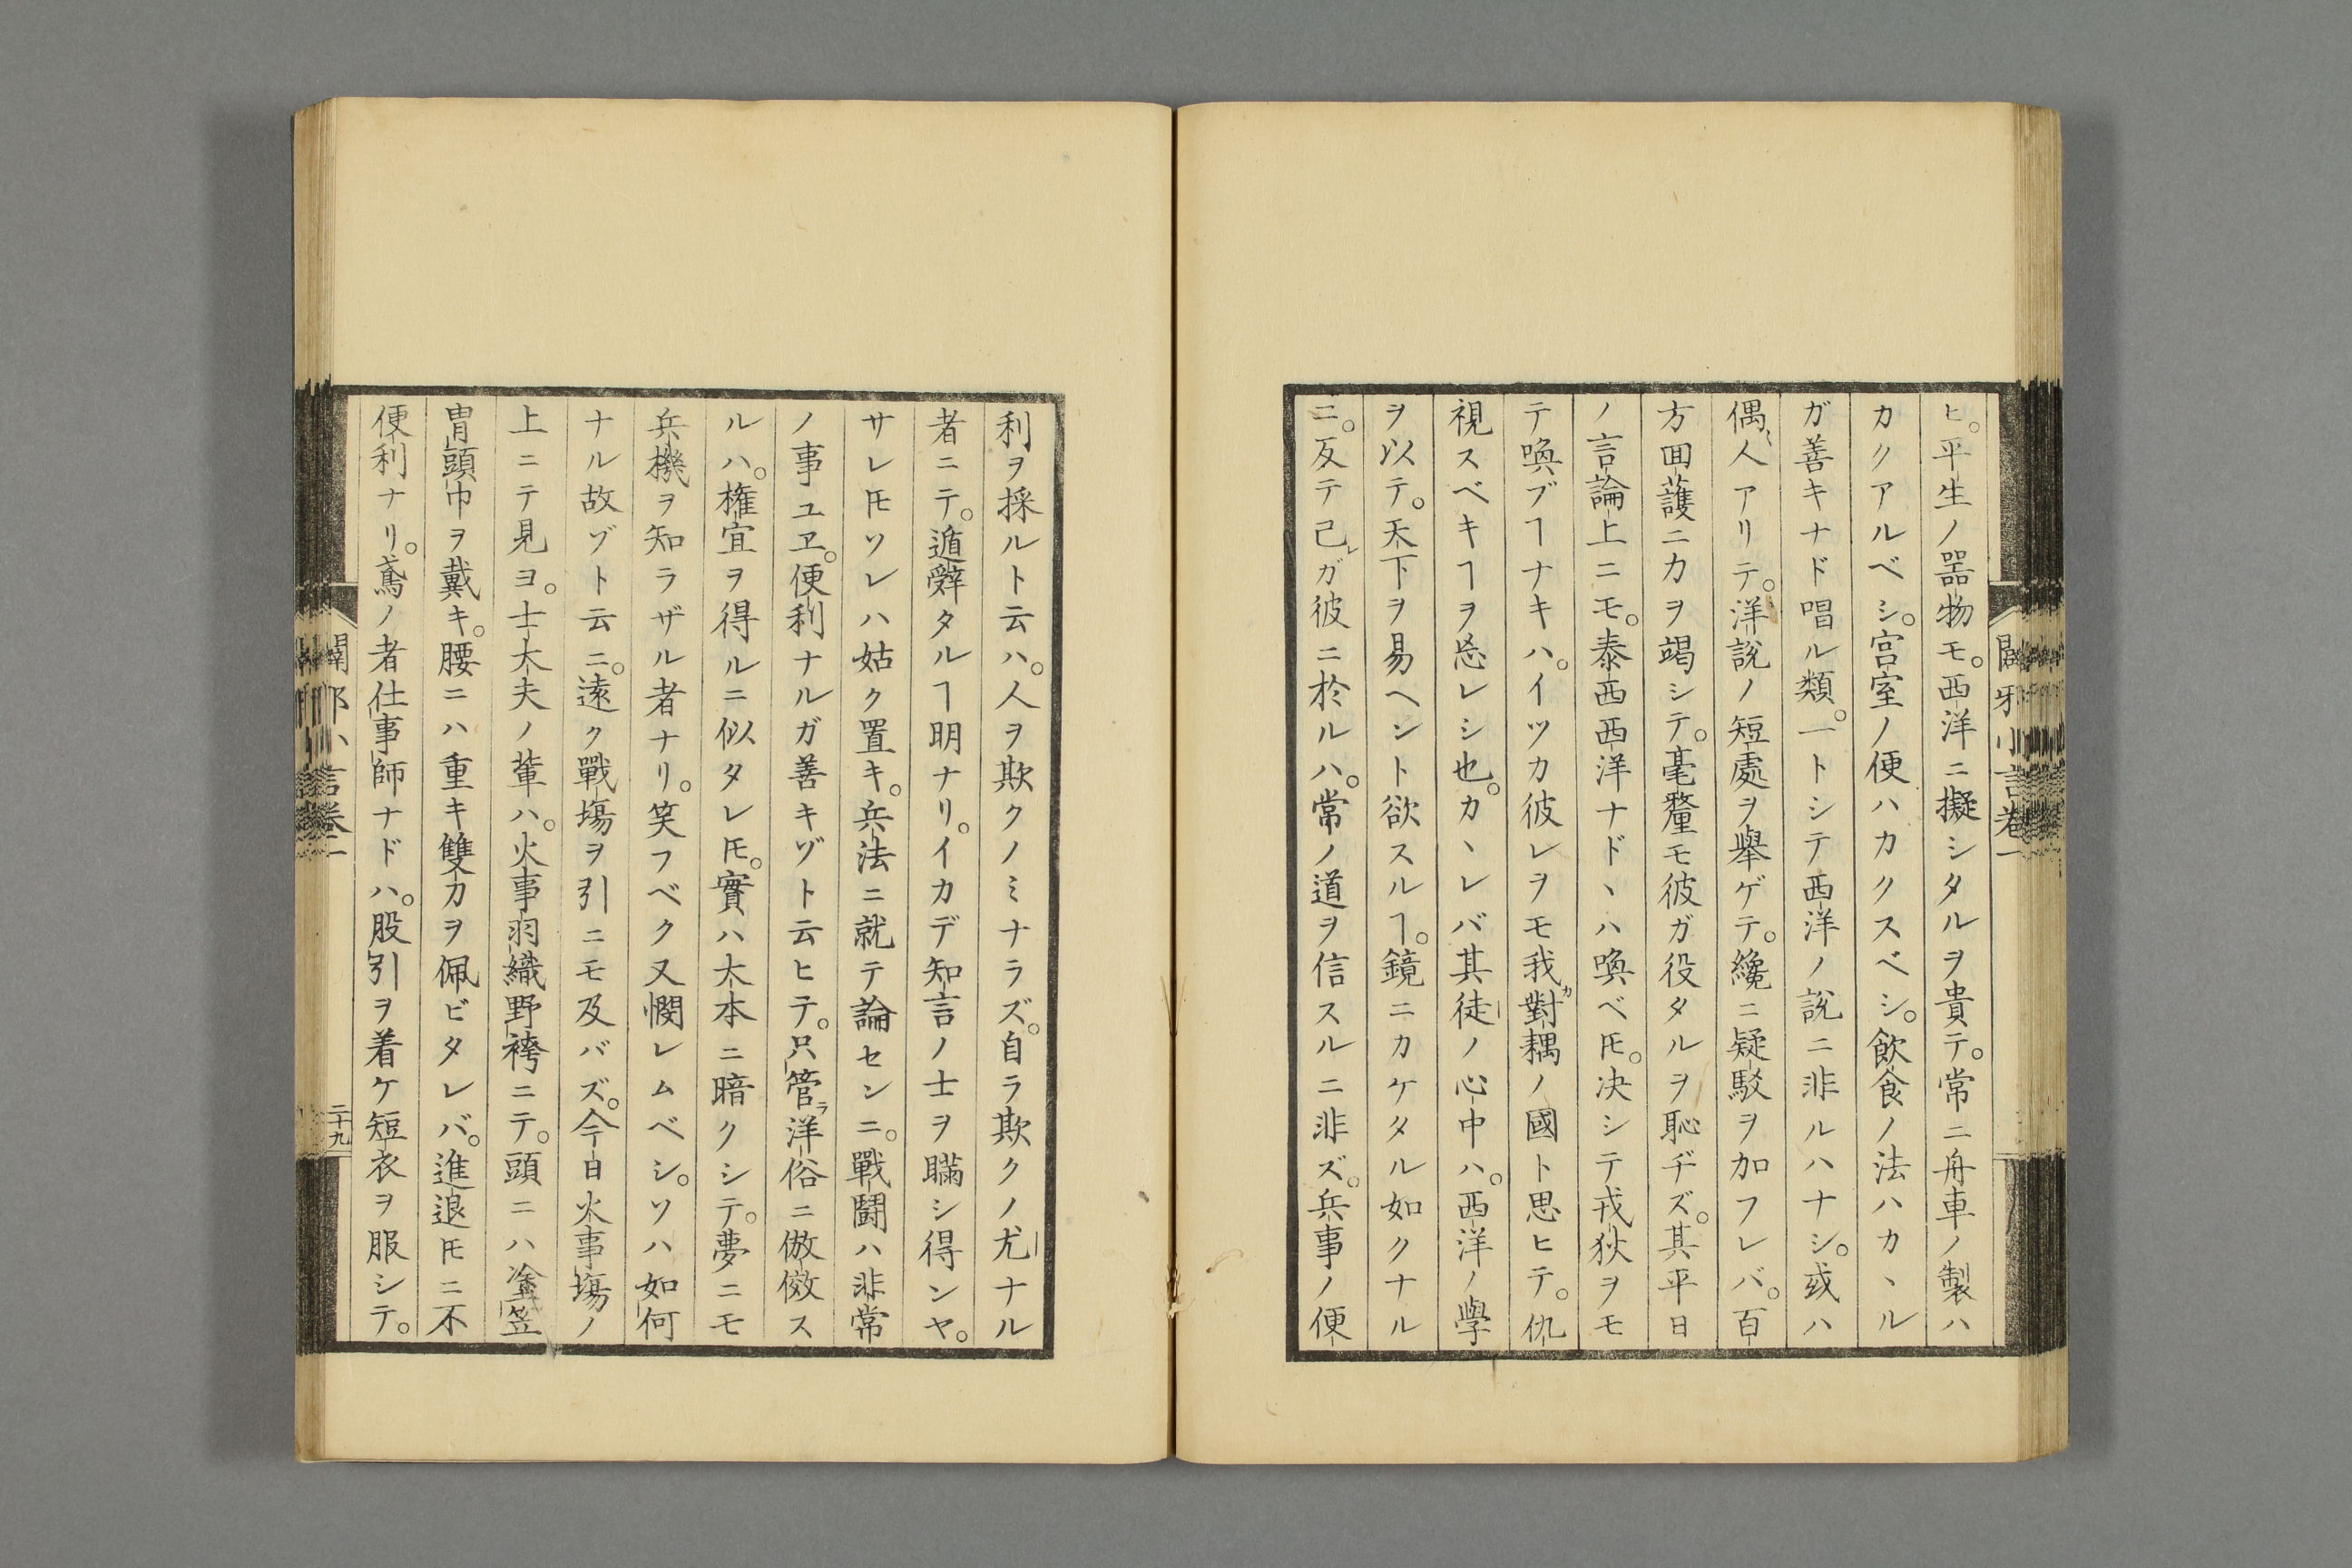 ヒ。平生ノ器物モ。西洋ニ擬シタルヲ貴テ。常ニ舟車ノ製ハ
カクアルベシ。宮室ノ便ハカクスベシ。飲食ノ法ハカヽル
ガ善キナド唱ル類。一トシテ西洋ノ説ニ非ルハナシ。或ハ
偶〻人アリテ。洋説ノ短處ヲ舉ゲテ。纔ニ疑駁ヲ加フレバ。百
方回護ニカヲ竭シテ。毫釐モ彼ガ役タルヲ恥ヂズ。其平日
ノ言論上ニモ。泰西西洋ナドヽハ喚ベ𪜈。决シテ戎狄ヲモ
テ喚ブヿナキハ。イツカ彼レヲモ我對耦ノ國ト思ヒテ。仇
視スベキヿヲ忘レシ也。カヽレバ其徒ノ心中ハ。西洋ノ學
ヲ以テ。天下ヲ易ヘント欲スルヿ。鏡ニカケタル如クナル
ニ。反テ己レガ彼ニ於ルハ。常ノ道ヲ信スルニ非ズ。兵事ノ便
利ヲ採ルト云ハ。人ヲ欺クノミナラズ。自ラ欺クノ尤ナル
者ニテ。遁辭タルヿ明ナリ。イカデ知言ノ士ヲ瞞シ得ンヤ。
サレ𪜈ソレハ姑ク置キ。兵法ニ就テ論センニ。戰鬪ハ非常
ノ事ユヱ。便利ナルガ善キゾト云ヒテ。只管ラ洋俗ニ倣傚ス
ルハ。権宜ヲ得ルニ似タレ𪜈。實ハ大本ニ暗クシテ。夢ニモ
兵機ヲ知ラザル者ナリ。笑フベク又憫レムベシ。ソハ如何
ナル故ゾト云ニ。遠ク戰場ヲ引ニモ及バズ。今日火事場ノ
上ニテ見ヨ。士大夫ノ輩ハ。火事羽織野袴ニテ。頭ニハ塗笠
冑頭巾ヲ戴キ。腰ニハ重キ雙刀ヲ佩ビタレバ。進退𪜈ニ不
便利ナリ。鳶ノ者仕事師ナドハ。股引ヲ着ケ短衣ヲ服シテ。
闢邪小言卷一
二十九